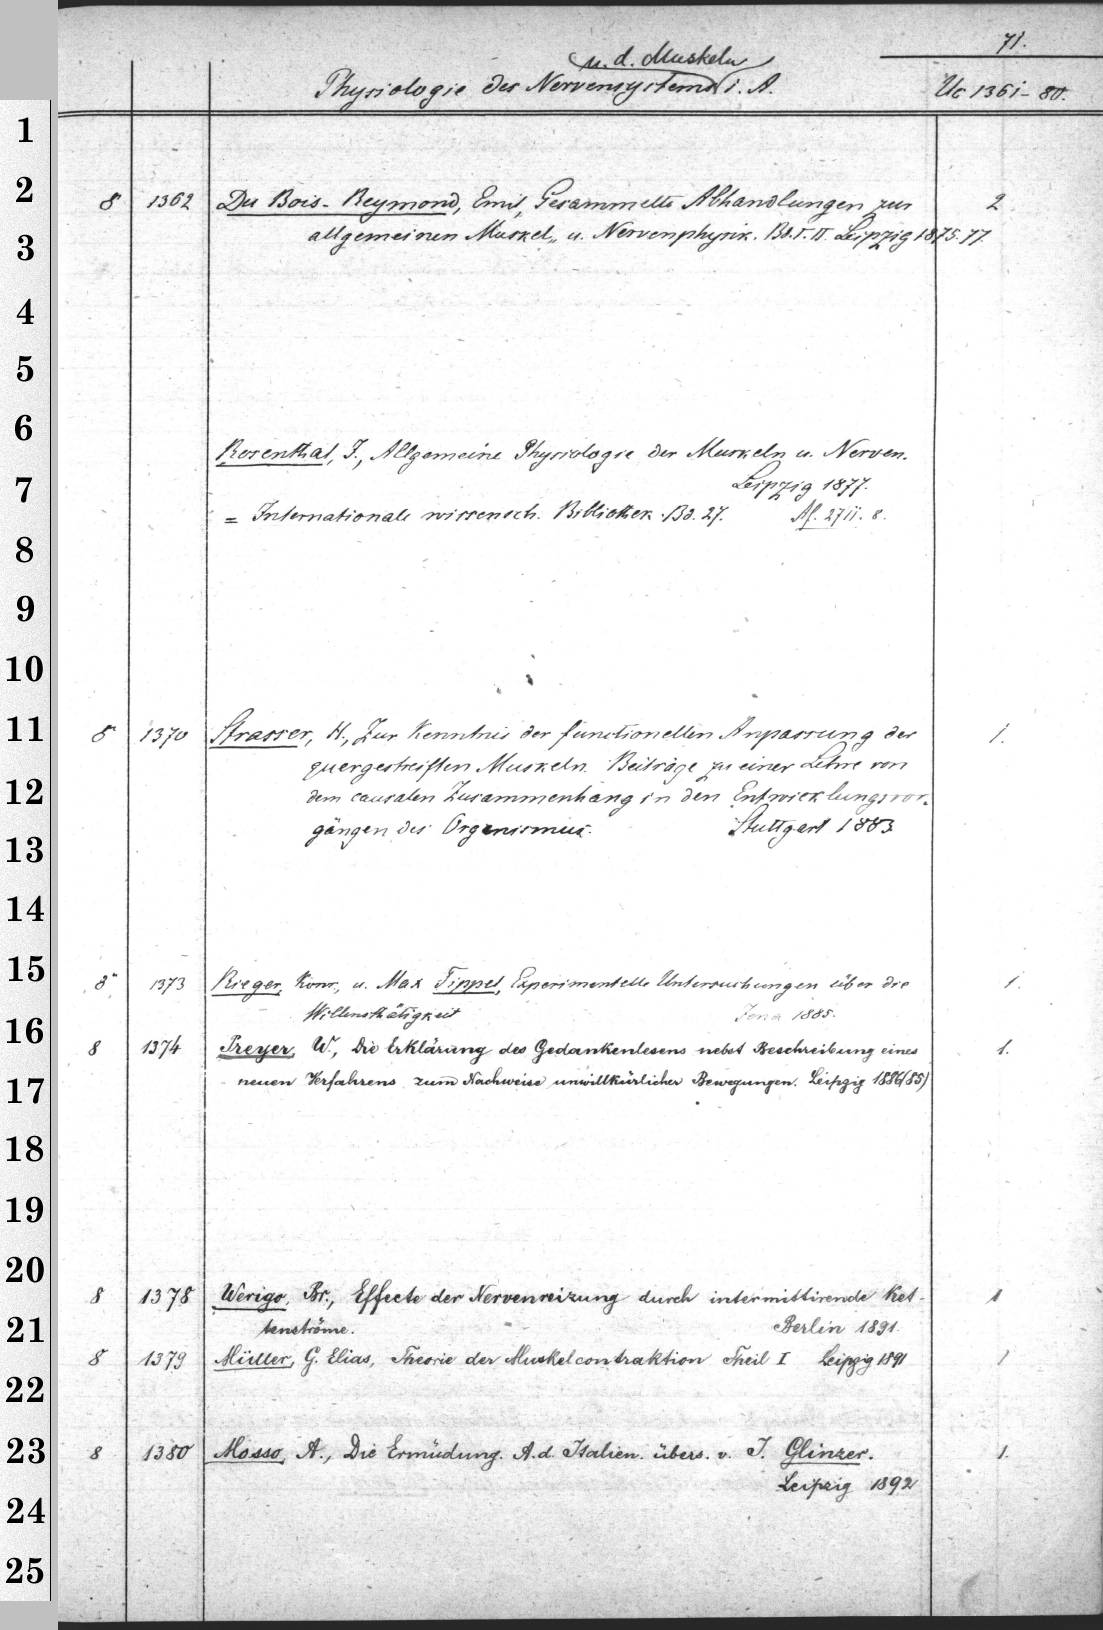 71.
u. d. Muskeln
Physiologie des Nervensystems i. A. Uc 1361-80.
1
2
8 1362 Du Bois-Reymond, Emil, Gesammelte Abhandlungen zur 2
3
allgemeinen Muskel- u. Nervenphysik. Bd. I. II. Leipzig 1875. 77.
4
5
6
Rosenthal, I., Allgemeine Physiologie der Muskeln u. Nerven.
7
Leipzig 1877.
= Internationale wissensch. Bibliothek. Bd. 27. Af. 2711. 8.
8
9
10
11
8 1370 Strasser, H., Zur Kenntnis der functionellen Anpassung der 1.
quergestreiften Muskeln. Beiträge zu einer Lehre von
12
dem causalen Zusammenhang in den Entwicklungsvor-
gängen des Organismus. Stuttgart 1883
13
14
15
8 1373 Rieger, Konr., u. Max Tippel, Experimentelle Untersuchungen über die 1.
Willensthätigkeit Jena 1885.
16
8 1374 Preyer, W., Die Erklärung des Gedankenlesens nebst Beschreibung eines 1.
17
neuen Verfahrens zum Nachweise unwillkürlicher Bewegungen. Leipzig 1886(85)
18
19
20
8 1378 Werigo, Br., Effecte der Nervenreizung durch intermittirende Ket- 1
21
tenströme. Berlin 1891.
8 1379 Müller, G. Elias, Theorie der Muskelcontraktion Theil I Leipzig 1891 1
22
23
8 1380 Mosso, A., Die Ermüdung. A. d. Italien. übers. v. J. Glinzer. 1.
Leipzig 1892
24
25